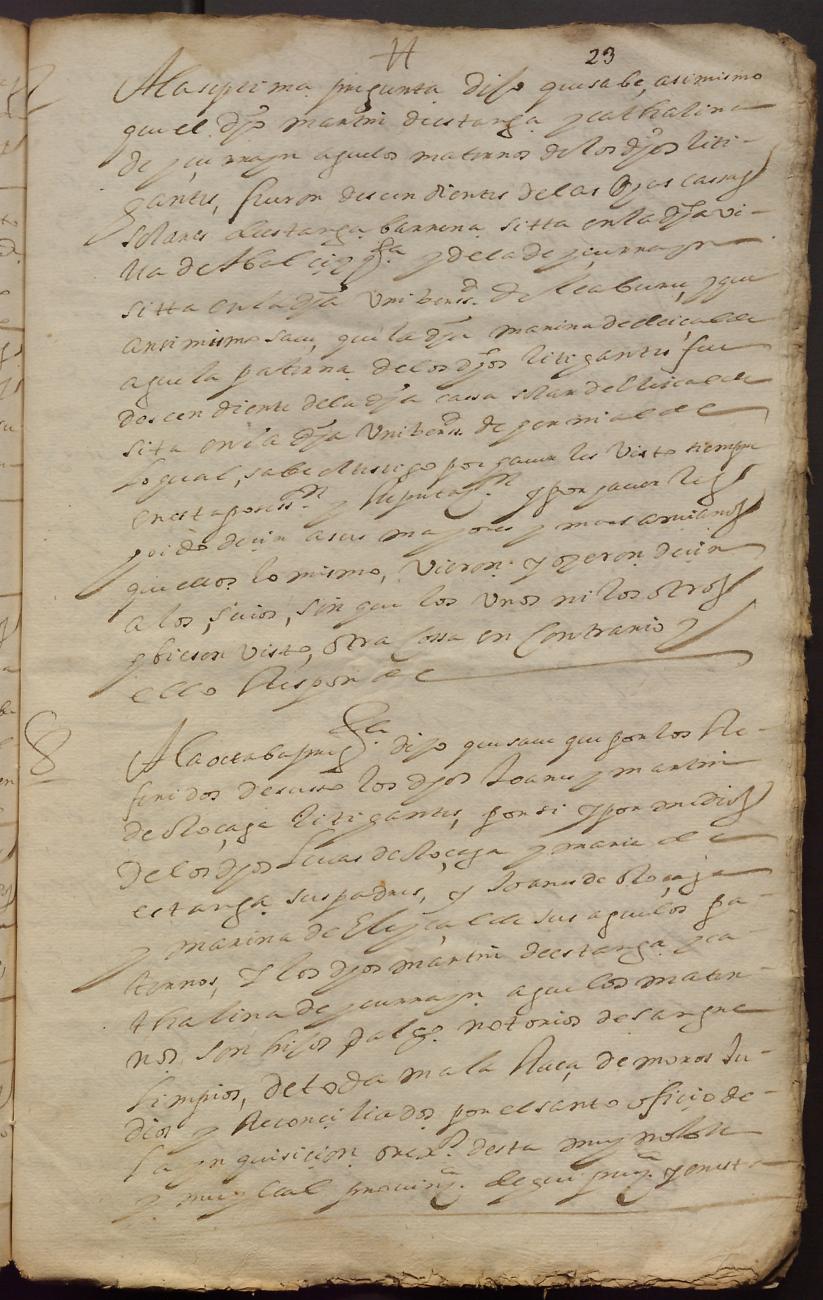 23
7 A la septima pregunta dijo que sabe, asimismo
que el dho martin de estanga y cathalina
de yçurrayn aguelos maternos de los dhos liti-
gantes, fueron descendientes de las dhas cassas
solares de estanga barrena sitta en la dha vi-
lla de Abalcizqª y de la de yçurrayn
sitta en la dha Unibersd de Leaburu, y que
ansimismo save, que la dha marina de eleicalde
aguela paterna de los dhos litigantes fue
descendiente de la dha cassa solar de eleicalde
sita en la dha Unibersd de
Lo qual, sabe el testigo por haver les visto siempre
en esta posesson y Reputaçon y por haver les
oido decir a sus mayores y mas ancianos
que ellos lo mismo, vieron y oyeron decir
a los suios, sin que los unos ni los otros
obiesen visto, otra cossa en Contrario y
esto Responde
8 A la octaba pregta dijo que save que por los Re-
feridos de susso los dhos Joanes y martin
de Roçaga litigantes, por si y por medio
de los dhos Lucas de Roçaga y maria de
estanga sus padres, y Joanes de Roçaga
y marina de Eleycalde sus aguelos pa-
ternos, y los dhos martin de estanga y ca-
thalina de yçurrayn aguelos mater-
nos, son hijos dalgo notorios de sangre
Limpios, de toda mala Raça de moros Ju-
dios y Reconciliados por el santo oficio de
La ynquisicion de desta muy noble
y muy leal provinçª de guipuzª y en esta